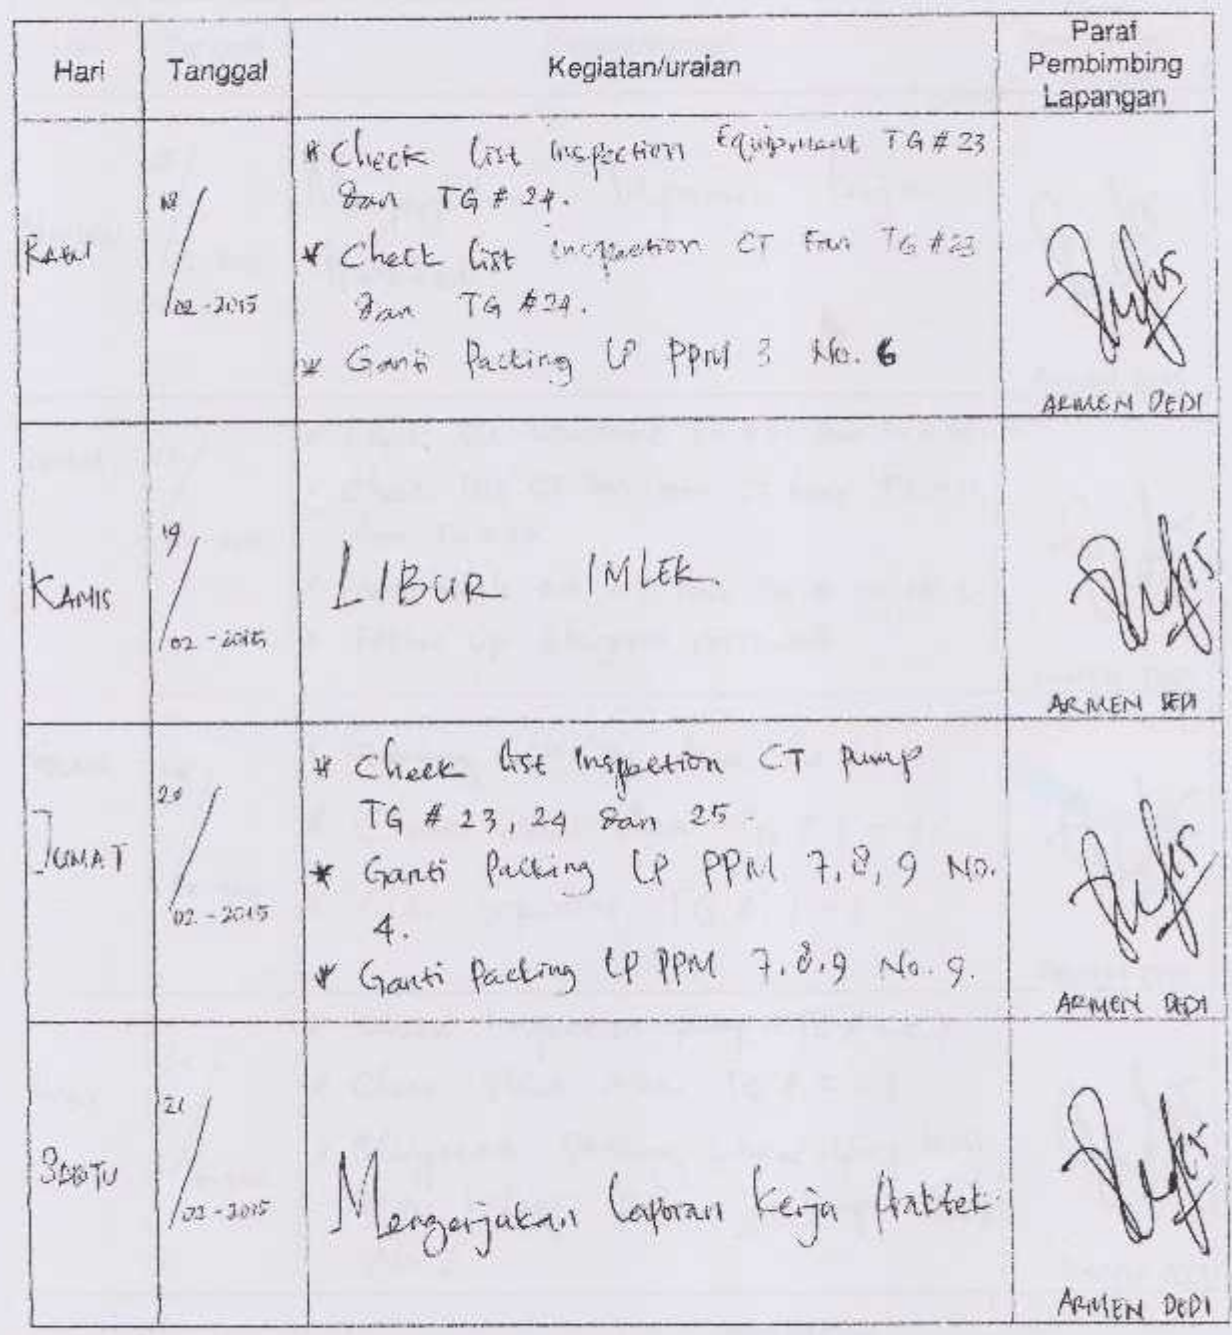 Hari Tanggal Kegiatan/uraian Paraf Pembimbing Lapangan
Rabu 18/02-2015
* Check list Inspection Equipment TG # 23
dan TG # 24.
* Check list inspection CT Fan TG #23
dan TG #24.
* Ganti Packing LP PPM 3 No. 6
ARMEN DEDI
KAMIS 19/02-2015
LIBUR IMLEK.
ARMEN DEDI
JUMAT 20/02-2015
* Check list Inspection CT pump
TG # 23, 24 dan 25.
* Ganti Packing LP PPM 7, 8, 9 No.
4.
* Ganti Packing LP PPM 7.8.9 No. 9.
ARMEN DEDI
SABTU 21/02-2015
Mengerjakan Laporan Kerja Praktek
ARMEN DEDI